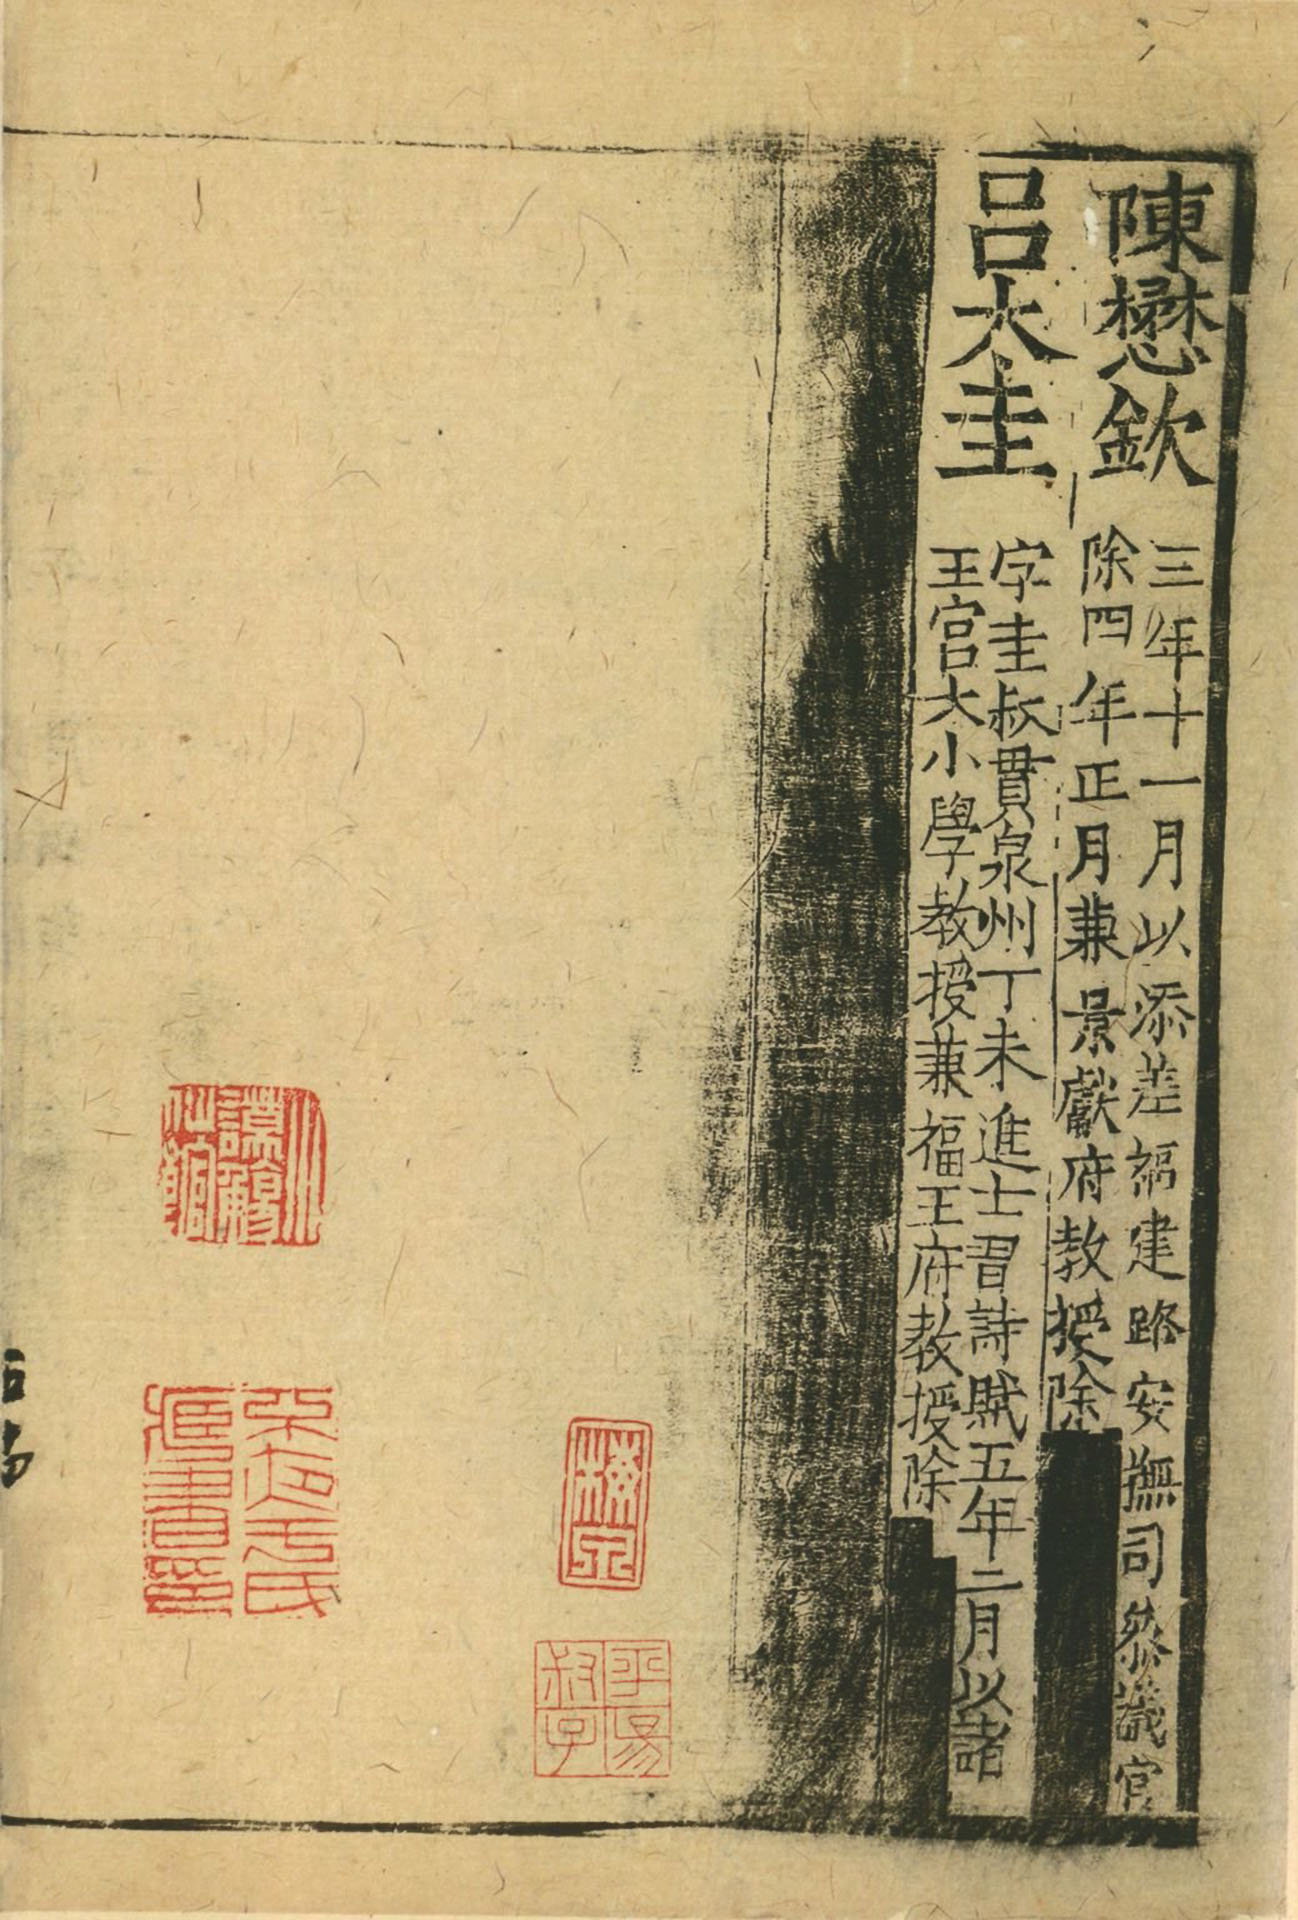 陳懋欽
三年十一月以添差福建路安撫司叅議官
除四年正月兼景獻府教授除
呂大圭
字圭叔貫泉州丁未進士習詩賦五年二月以諸
王宮大小學教授兼福王府教授除